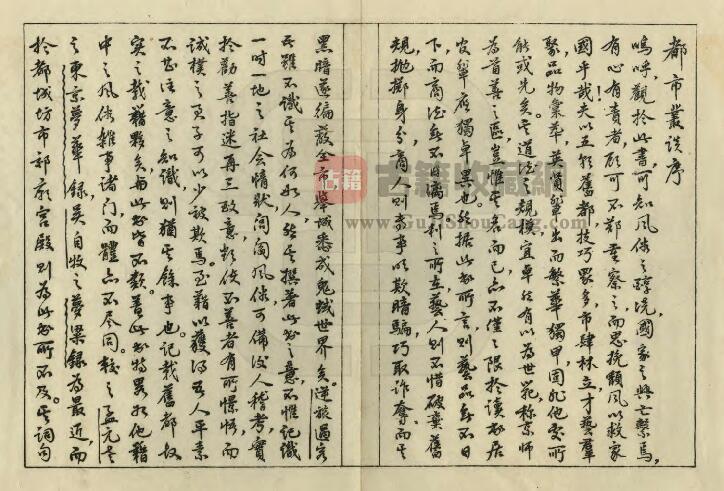 都市叢談序
嗚呼，觀於此書，可知風俗之醇澆，國家之興亡繫焉，
有心有責者，顧可不鄭重察之，而思挽頹風以救家
國乎哉！夫以五朝舊都，技巧眾多，市肆林立，才藝羣
聚，品物彙萃，英賢輩出，而繁華獨甲，固非他處所
能或先矣。其道法之規模，宜卓然有以為世範，稱京師
為首善之區，豈惟其名而已，亦不僅之限於讀書居
官輩為獨卓異也。然據此書所言，則藝品無不日
下，而商德無不日離，馬利之所在，藝人則不惜破棄舊
規，拋擲身分，商人則素事以欺暗騙，巧取詐奪，而其
黑暗遂徧蔽全市，舉城悉成鬼蜮世界矣。逆旅過客
吾雖不識其為何如人，然其撰著此書之意，不惟記識
一時一地之社會情狀，閭閻風俗，可備後人稽考，實
於勸善指迷，再三致意，期使不善者有所憬悟，而
誠樸之君子可以少被欺焉，至藉以獲得吾人平素
不甚注意之知識，則猶其餘事也。記載舊都故
實之載籍夥矣，與此書皆不類，蓋此書特異於他籍
中之風俗雜事諸門，而體亦不盡同。較之孟元老
之東京夢華錄，吳自牧之夢粱錄為最近，而
於都城坊市祁廟宮殿，則為此書所不及。其詞句
古籍
古籍收藏網
www.GujiShouCang.com